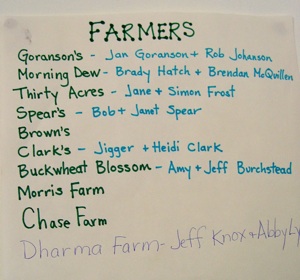 FARMERS
Goranson's - Jan Goranson + Rob Johanson
Morning Dew - Brady Hatch + Brendan McQuillen
Thirty Acres - Jane + Simon Frost
Spear's - Bob + Janet Spear
Brown's
Clark's - Jigger + Heidi Clark
Buckwheat Blossom - Amy + Jeff Burchstead
Morris Farm
Chase Farm
Dharma Farm - Jeff Knox + Abby